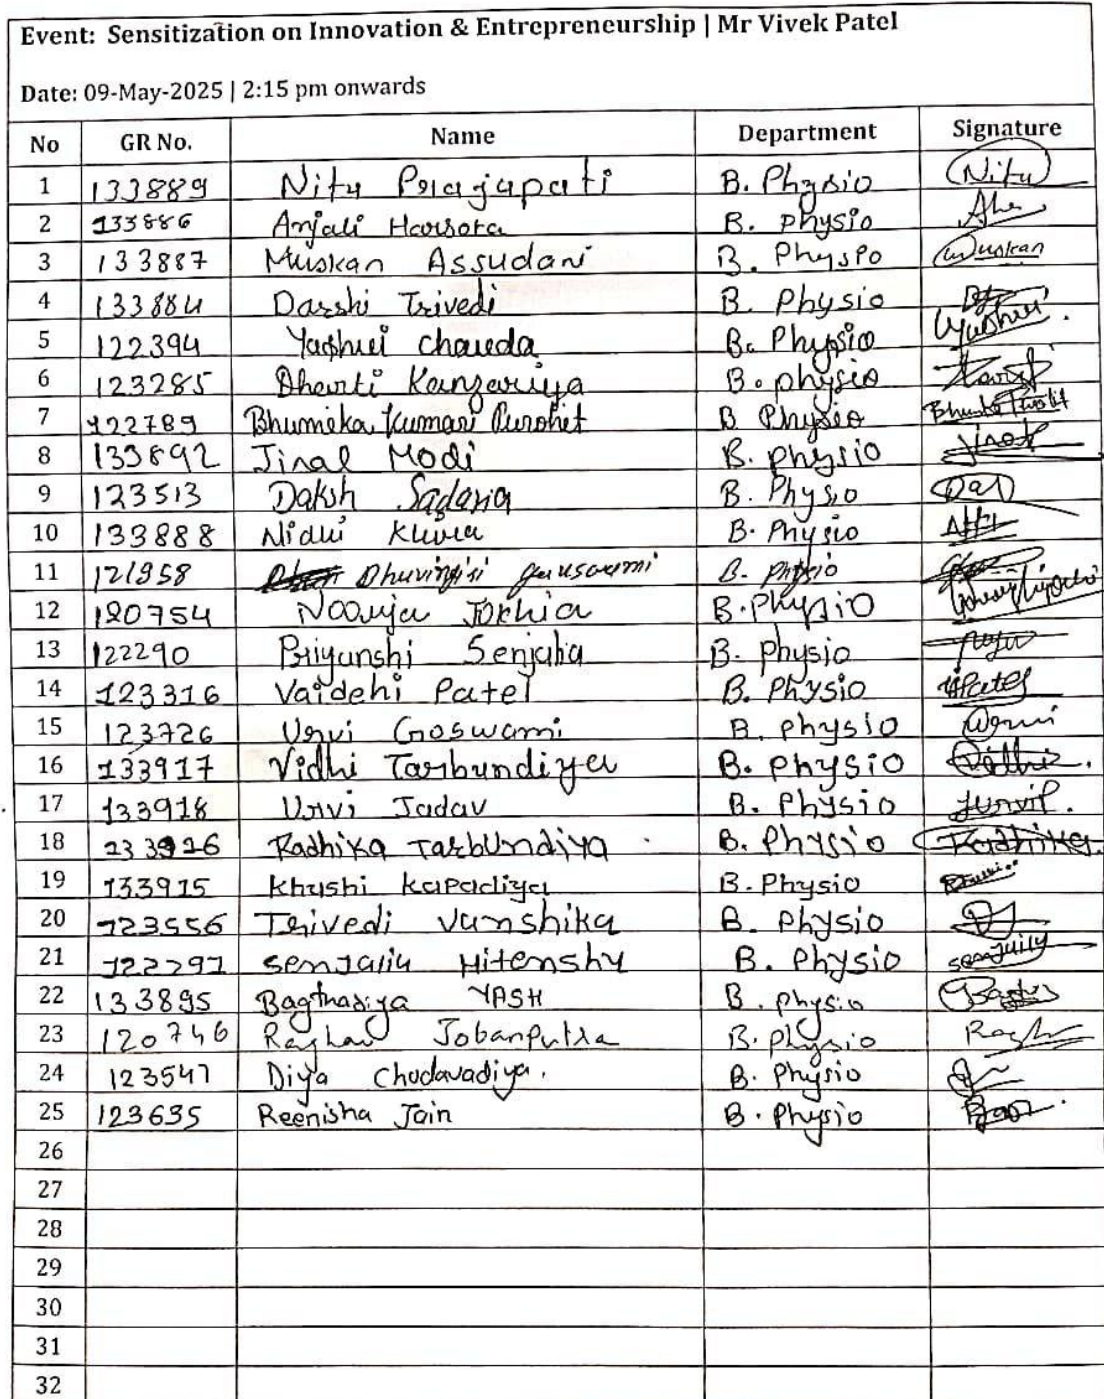 Event: Sensitization on Innovation & Entrepreneurship | Mr Vivek Patel
Date: 09-May-2025 | 2:15 pm onwards
No GR No. Name Department Signature
1 133889 Nitu Prajapati B. Physio Nitu
2 133886 Anjali Harsora B. Physio
3 133887 Muskan Assudani B. Physio Muskan
4 133884 Darshi Trivedi B. Physio
5 122394 Yashvi chavda B. Physio
6 123285 Dharti Kanzariya B. physio
7 122789 Bhumika Kumari Purohit B Physio
8 133892 Jinal Modi B. physio Jinal
9 123513 Daksh Sadaria B. Physio
10 133888 Nidhi B. Physio
11 121958 B. Physio
12 120754 Jokhia B. Physio
13 122290 Priyanshi Senjalia B. Physio
14 123316 Vaidehi Patel B. Physio
15 123726 Urvi Goswami B. physio Urvi
16 133917 Vidhi Tarbundiya B. Physio
17 133918 Urvi Jadav B. Physio
18 Radhika Tarbundiya B. Physio Radhika
19 133915 Khushi Kapadiya B. Physio
20 123556 Trivedi Vanshika B. Physio
21 122297 senjalia Hitenshy B. Physio senjaliy
22 133895 Bagthadiya YASH B. physio
23 120746 Raghav Jobanputra B. Physio
24 123547 Diya Chodavadiya. B. Physio
25 123635 Reenisha Jain B. Physio
26
27
28
29
30
31
32